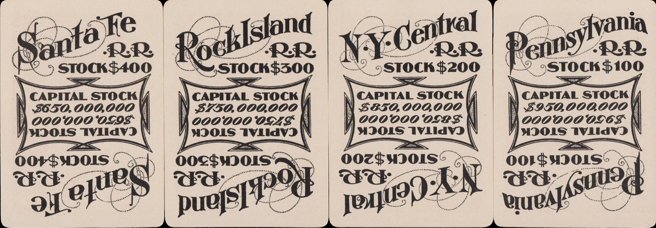 Santa Fe
R.R.
STOCK $400
CAPITAL STOCK
$650,000,000
Santa Fe
R.R.
STOCK $400
CAPITAL STOCK
$650,000,000
Rock Island
R.R.
STOCK $300
CAPITAL STOCK
$750,000,000
Rock Island
R.R.
STOCK $300
CAPITAL STOCK
$750,000,000
N.Y. Central
R.R.
STOCK $200
CAPITAL STOCK
$850,000,000
N.Y. Central
R.R.
STOCK $200
CAPITAL STOCK
$850,000,000
Pennsylvania
R.R.
STOCK $100
CAPITAL STOCK
$950,000,000
Pennsylvania
R.R.
STOCK $100
CAPITAL STOCK
$950,000,000